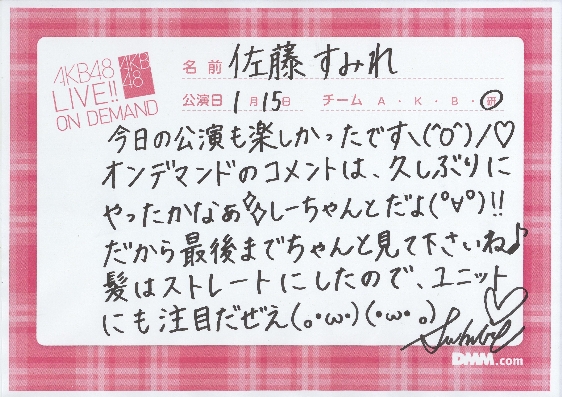 AKB48
LIVE!!
ON DEMAND
AKB
48
名前 佐藤すみれ
公演日 1月15日 チーム A・K・B・研
今日の公演も楽しかったです\(^O^)/♡
オンデマンドのコメントは、久しぶりに
やったかなぁ しーちゃんとだよ(°∀°)!!
だから最後までちゃんと見て下さいね♪
髪はストレートにしたので、ユニット
にも注目だぜえ(。・ω・)(・ω・。)
DMM.com